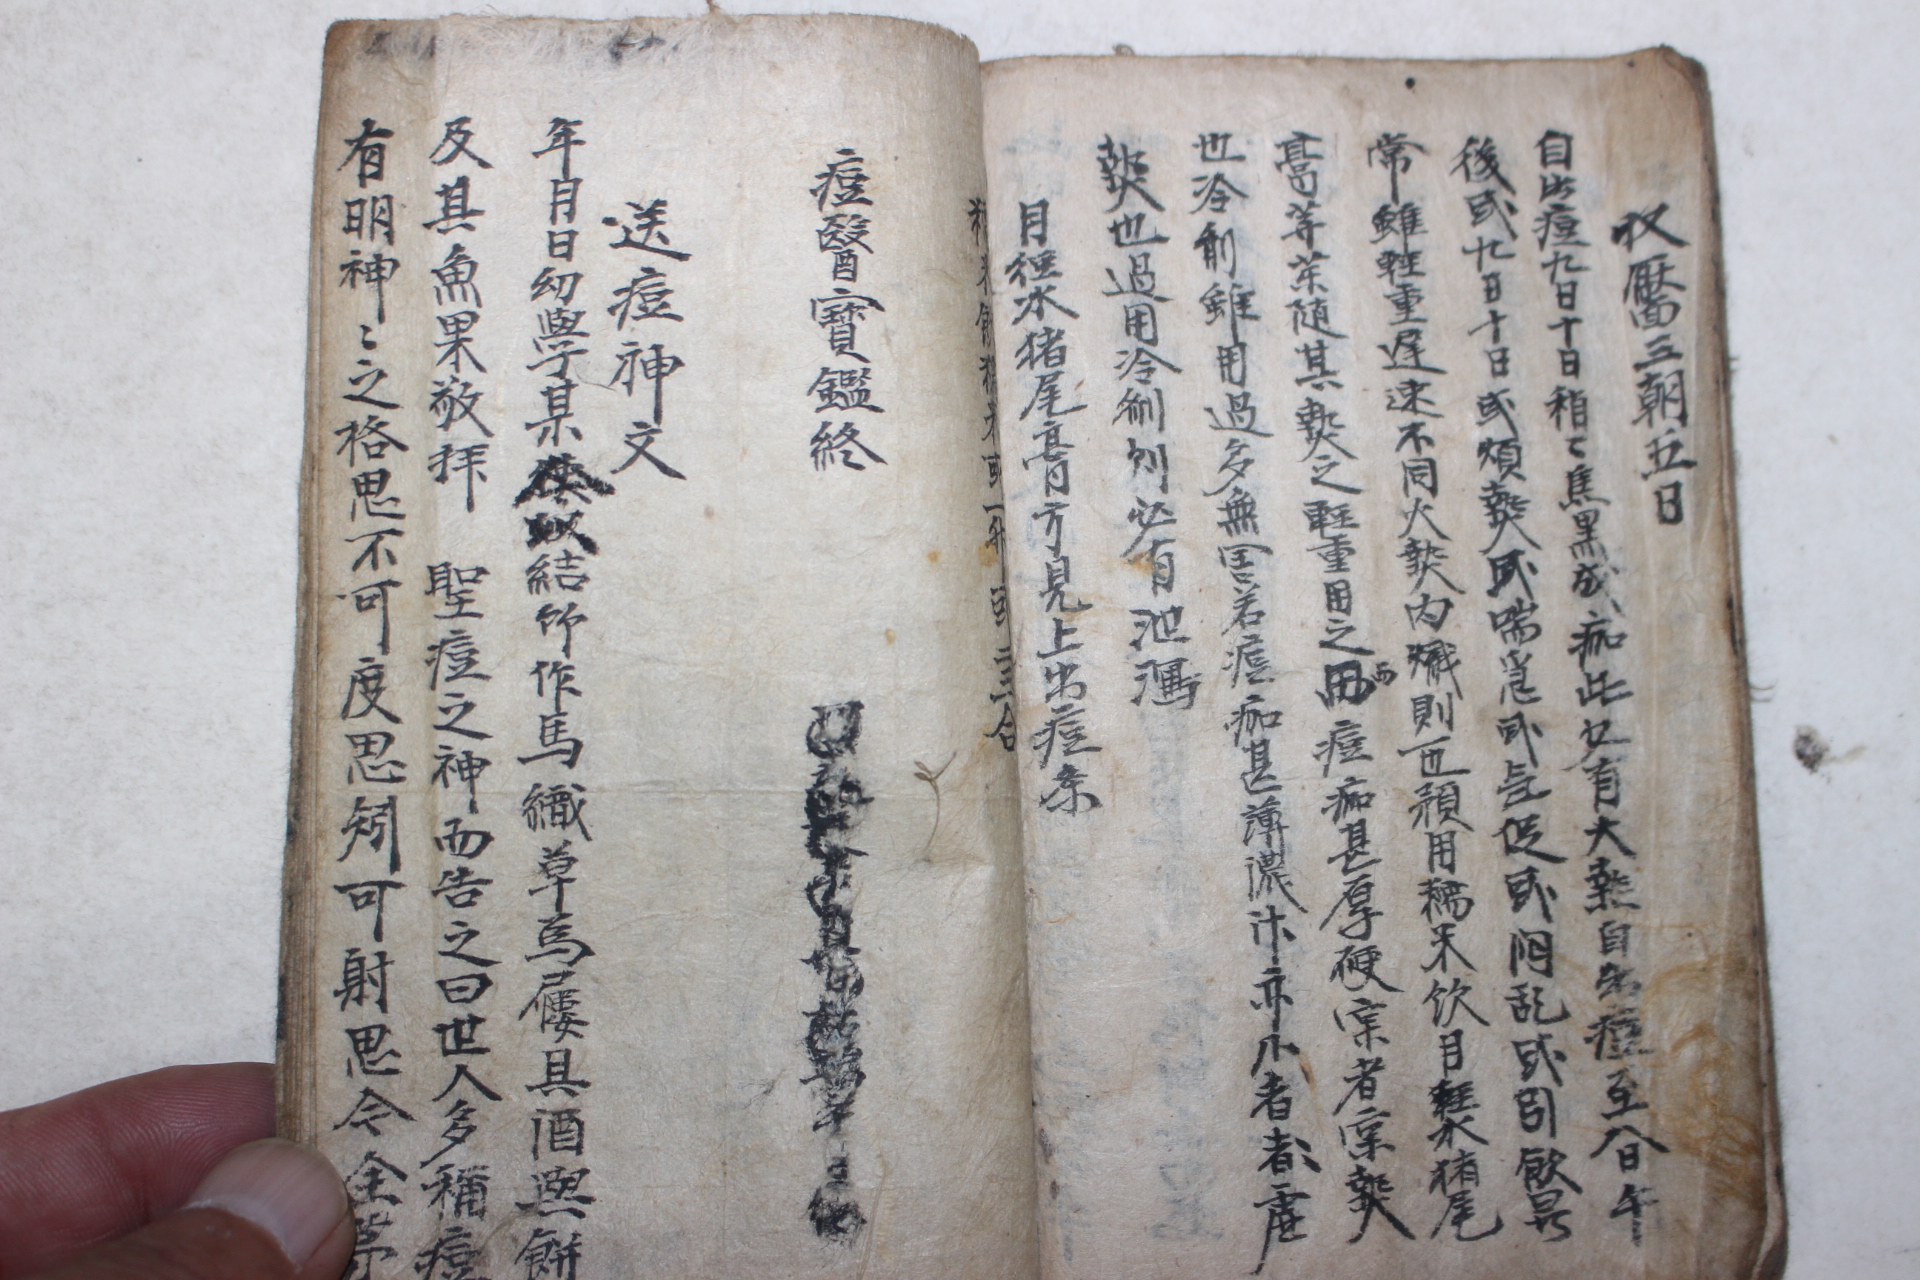 收靨三朝五日
自出痘九日十日稍〻焦黑成痂此也有大熱自出痘至八日午
後或九日十日或煩熱或喘急或氣促或悶乱或引飲異
常雖輕重遲速不同火熱內熾則一也須用糯米飲月經水猪尾
膏等藥隨其熱之輕重用之而痘痂甚厚硬深者深熱
也冷劑雖用過多無害若痘痂甚薄濃汁亦小者者虛
熱也過用冷劑則必有泄瀉
月經水猪尾膏方見上出痘条
痘醫寶鑑終
送痘神文
年月日幼學某結所作馬織草爲屨具酒與餅
及其魚果敬拜 聖痘之神而告之曰世人多稱痘
有明神〻之格思不可度思矧可射思今全